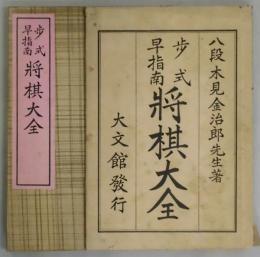 八段木見金治郎先生著
歩式
早指南
將棋大全
大文館發行
歩式
早指南
將棋大全